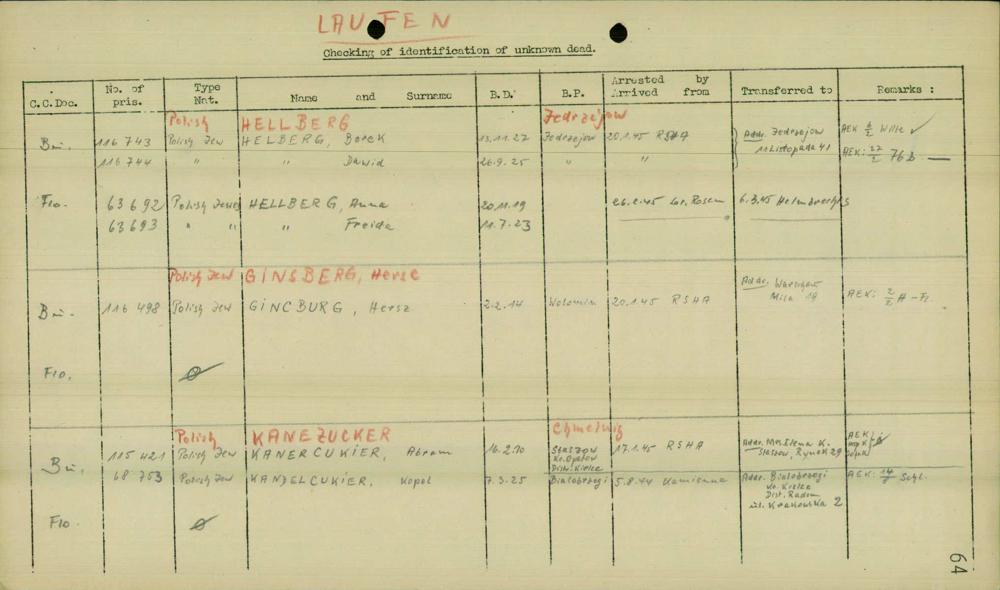 LAUFEN
Checking of identification of unknown dead.
C.C.Doc. No. of pris. Type Nat. Name and Surname B.D. B.P. Arrested by Arrived from Transferred to Remarks :
Polish HELLBERG Jedrzejow
Bu. 116 743 Polish Jew HELBERG, Berek 13.11.22 Jedrzejow 20.1.45 RSHA Addr. Jedrzejow AEK 2 Wille
11 Listopada 41
116 744 " " Dawid 26.9.25 " " AEK: 22/2 76b —
Flo. 63 692 Polish Jewess HELLBERG, Anna 20.11.19 26.2.45 Gr. Rosen 6.3.45 Helmbrechts
63 693 " " " Freida 11.7.23
Polish Jew GINSBERG, Hersc
Addr. Warschau
Bu. 116 498 Polish Jew GINCBURG, Hersz 2.2.14 Wolomin 20.1.45 RSHA Mila 19 AEK: 2/2 A-Fr.
Flo. Ø
Polish KANEZUCKER Chmelnig
Bu. 115 421 Polish Jew KANERCUKIER, Abram 16.2. Staszow 17.1.45 RSHA Addr. K. AEK
Kr. Opatow Staszow, Rynek 29
Distr. Kielce
68 753 Polish Jew KANDELCUKIER, Kopel 7.3.25 Bialobrzegi 5.8.44 Kamienna Addr. Bialobrzegi AEK: Schl.
Kr. Kielce
Dist. Radom
ul. Krakowska 2
Flo Ø
64